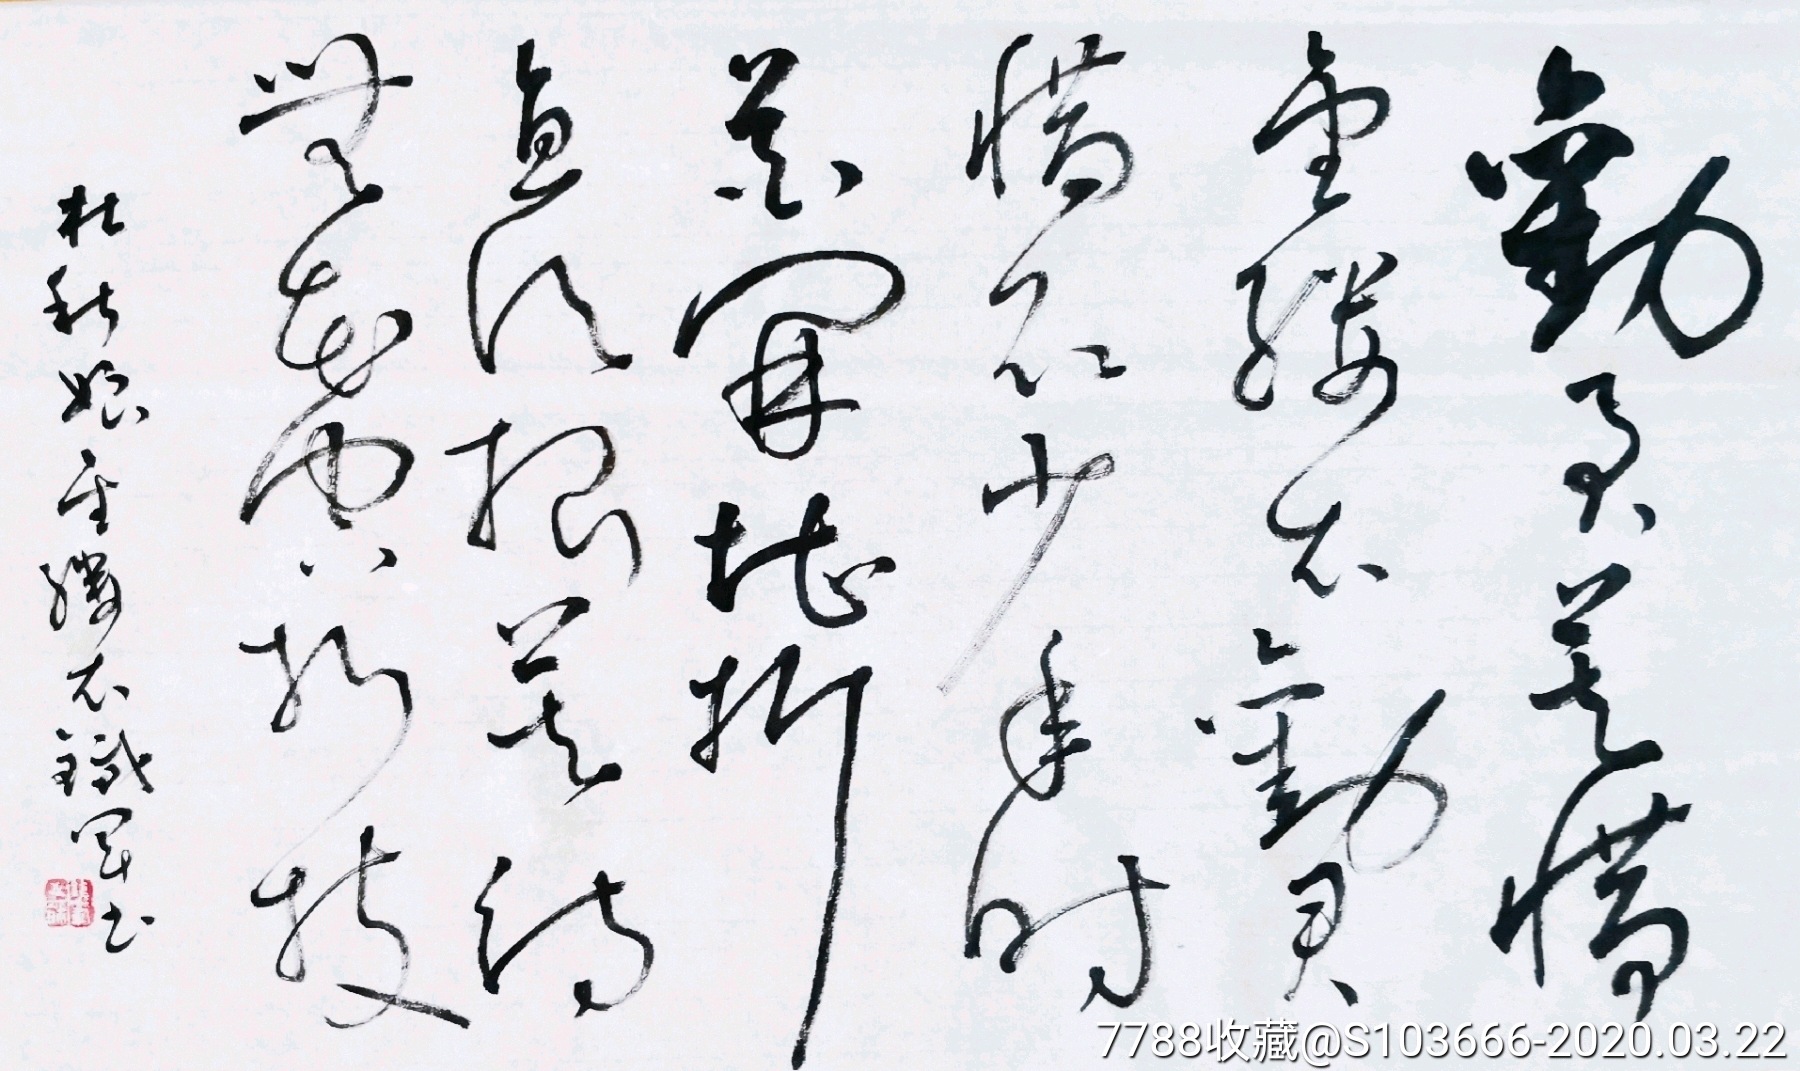 勸君莫惜
金縷衣勸君
惜取少年時
花開堪折
直須折莫待
無花空折枝
杜秋娘金縷衣鐵軍書
7788收藏@S103666-2020.03.22